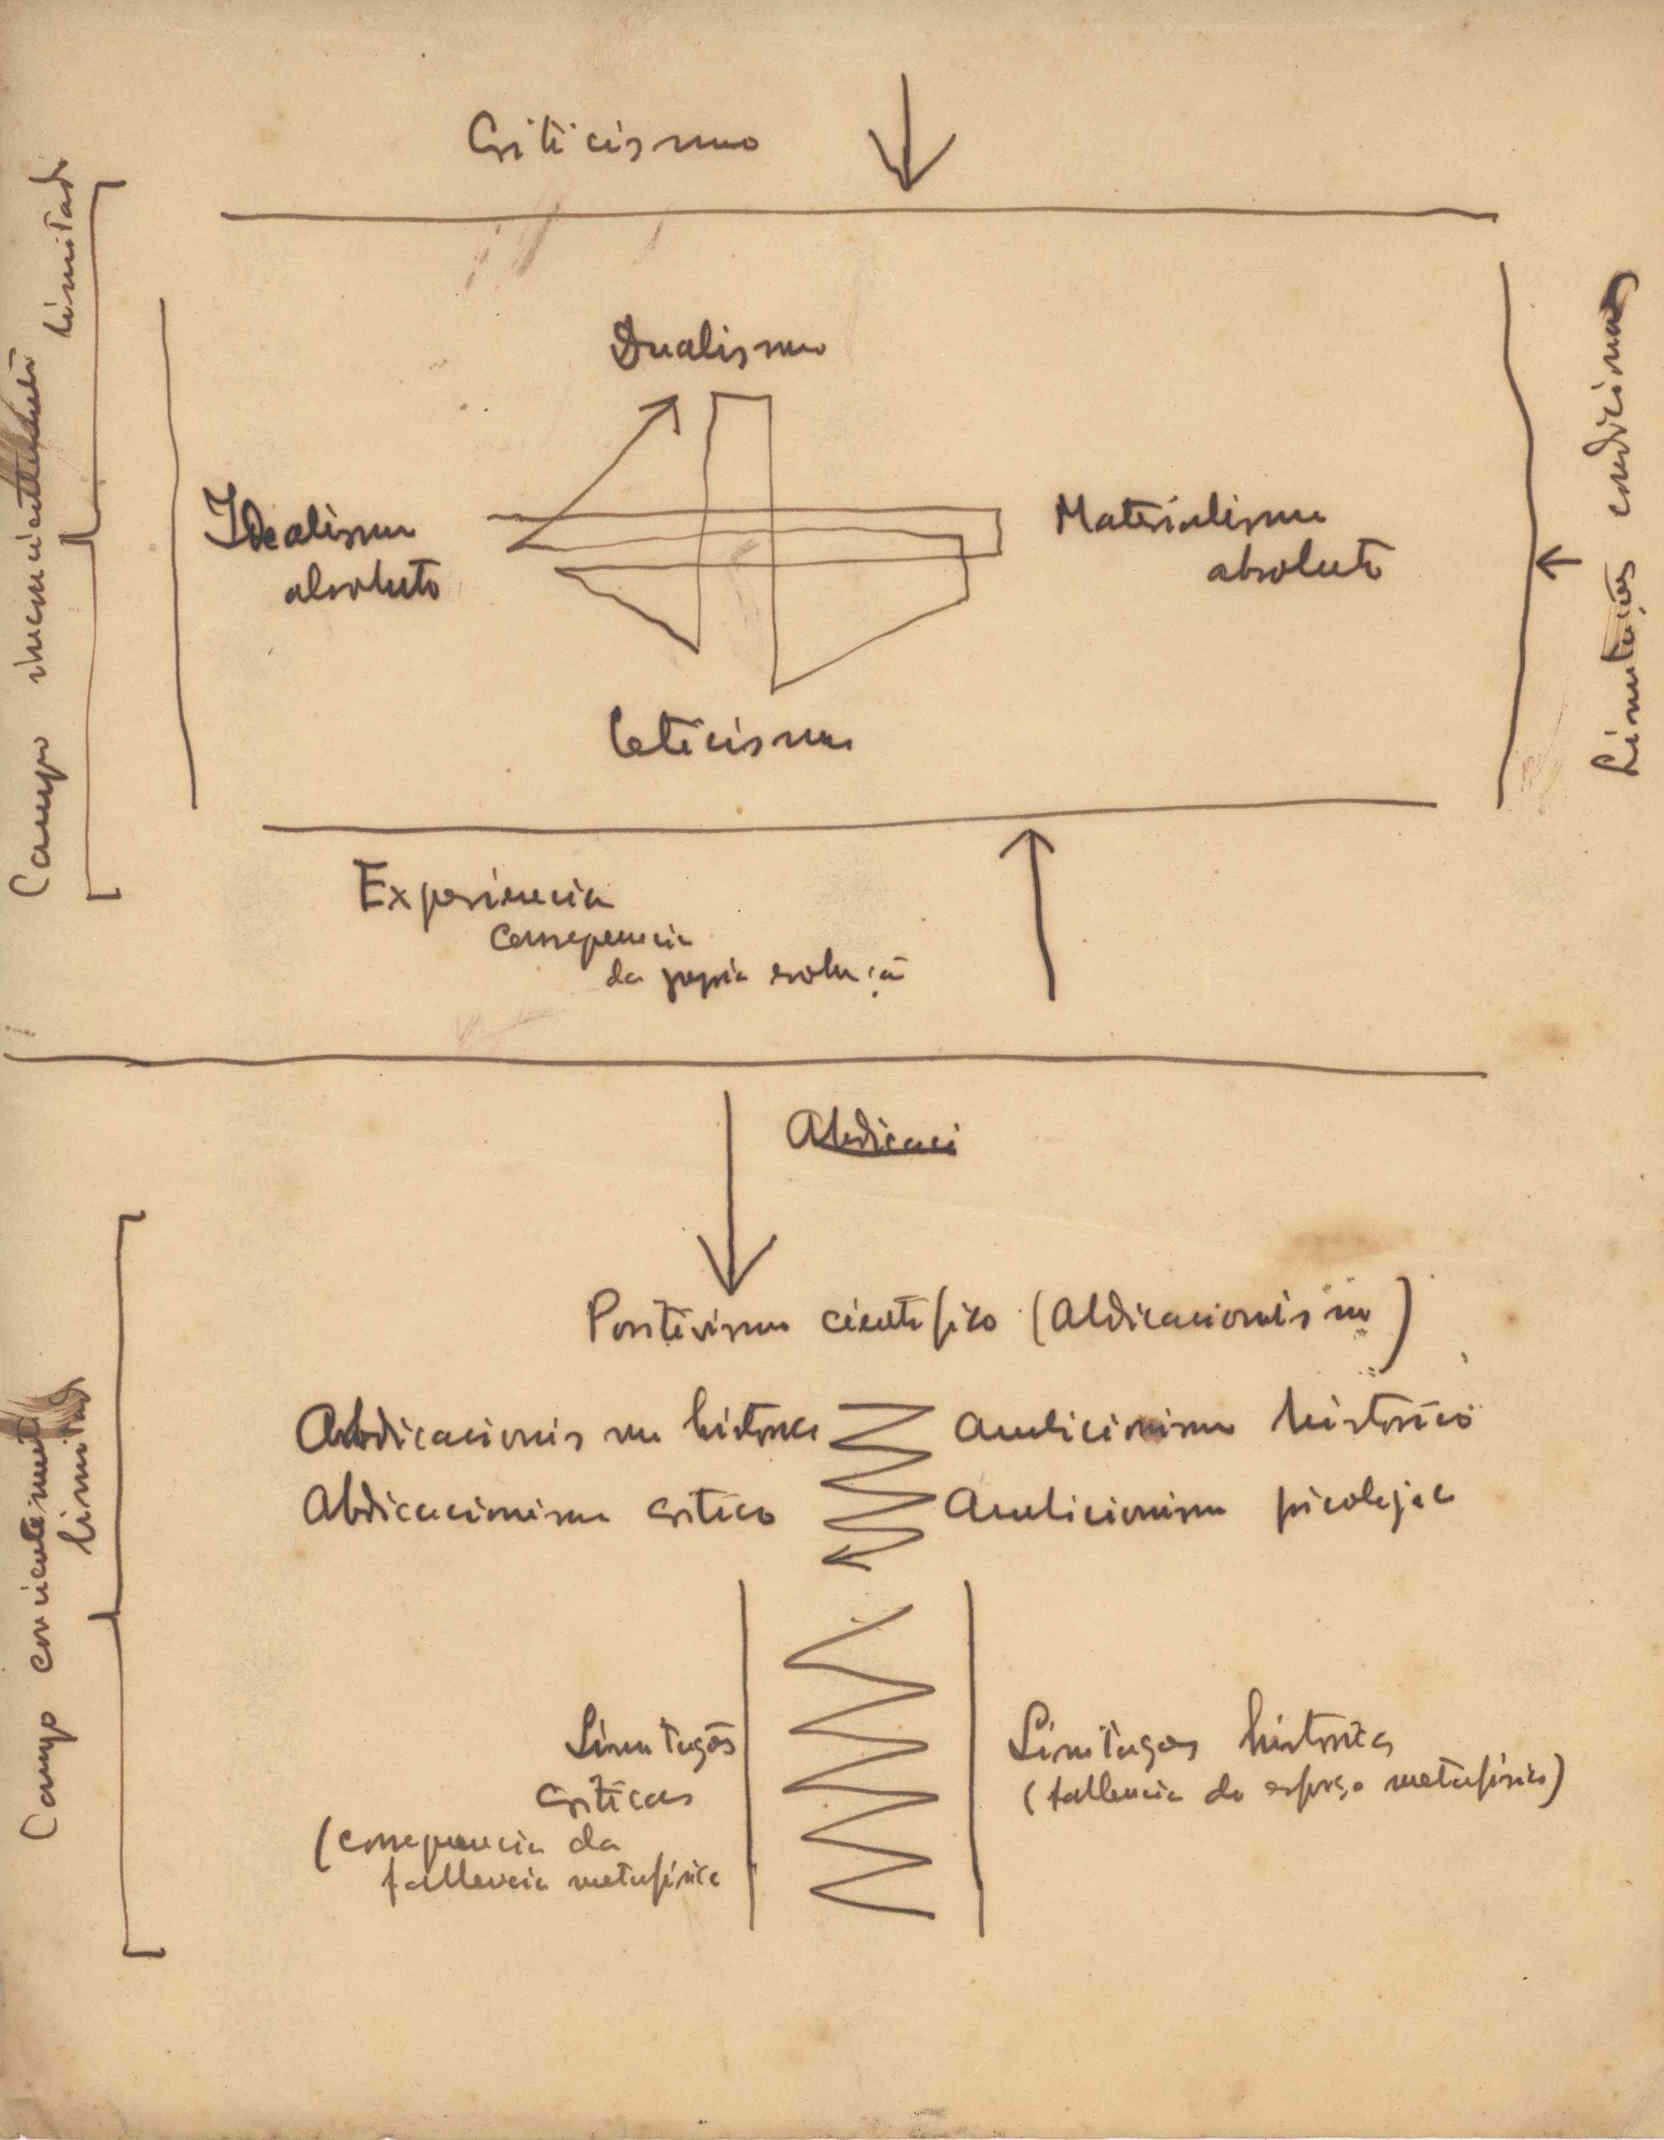 Criticismo
Campo inconcientemente limitado
Dualismo
Idealismo
absoluto
Materialismo
absoluto
Limitações condicionaes
Ceticismo
Experiencia
consequencia
da propia evolução
Abdicaci
Positivismo cientifico (Abdicacionismo)
Abdicacionismo historico
Analicionismo historico
Abdicacionismo critico
Analicionismo psicologico
Campo concientemente
limitado
Limitações
criticas
(consequencia da
fallencia metafisica
Limitações historicas
(fallencia do esforço metafisico)